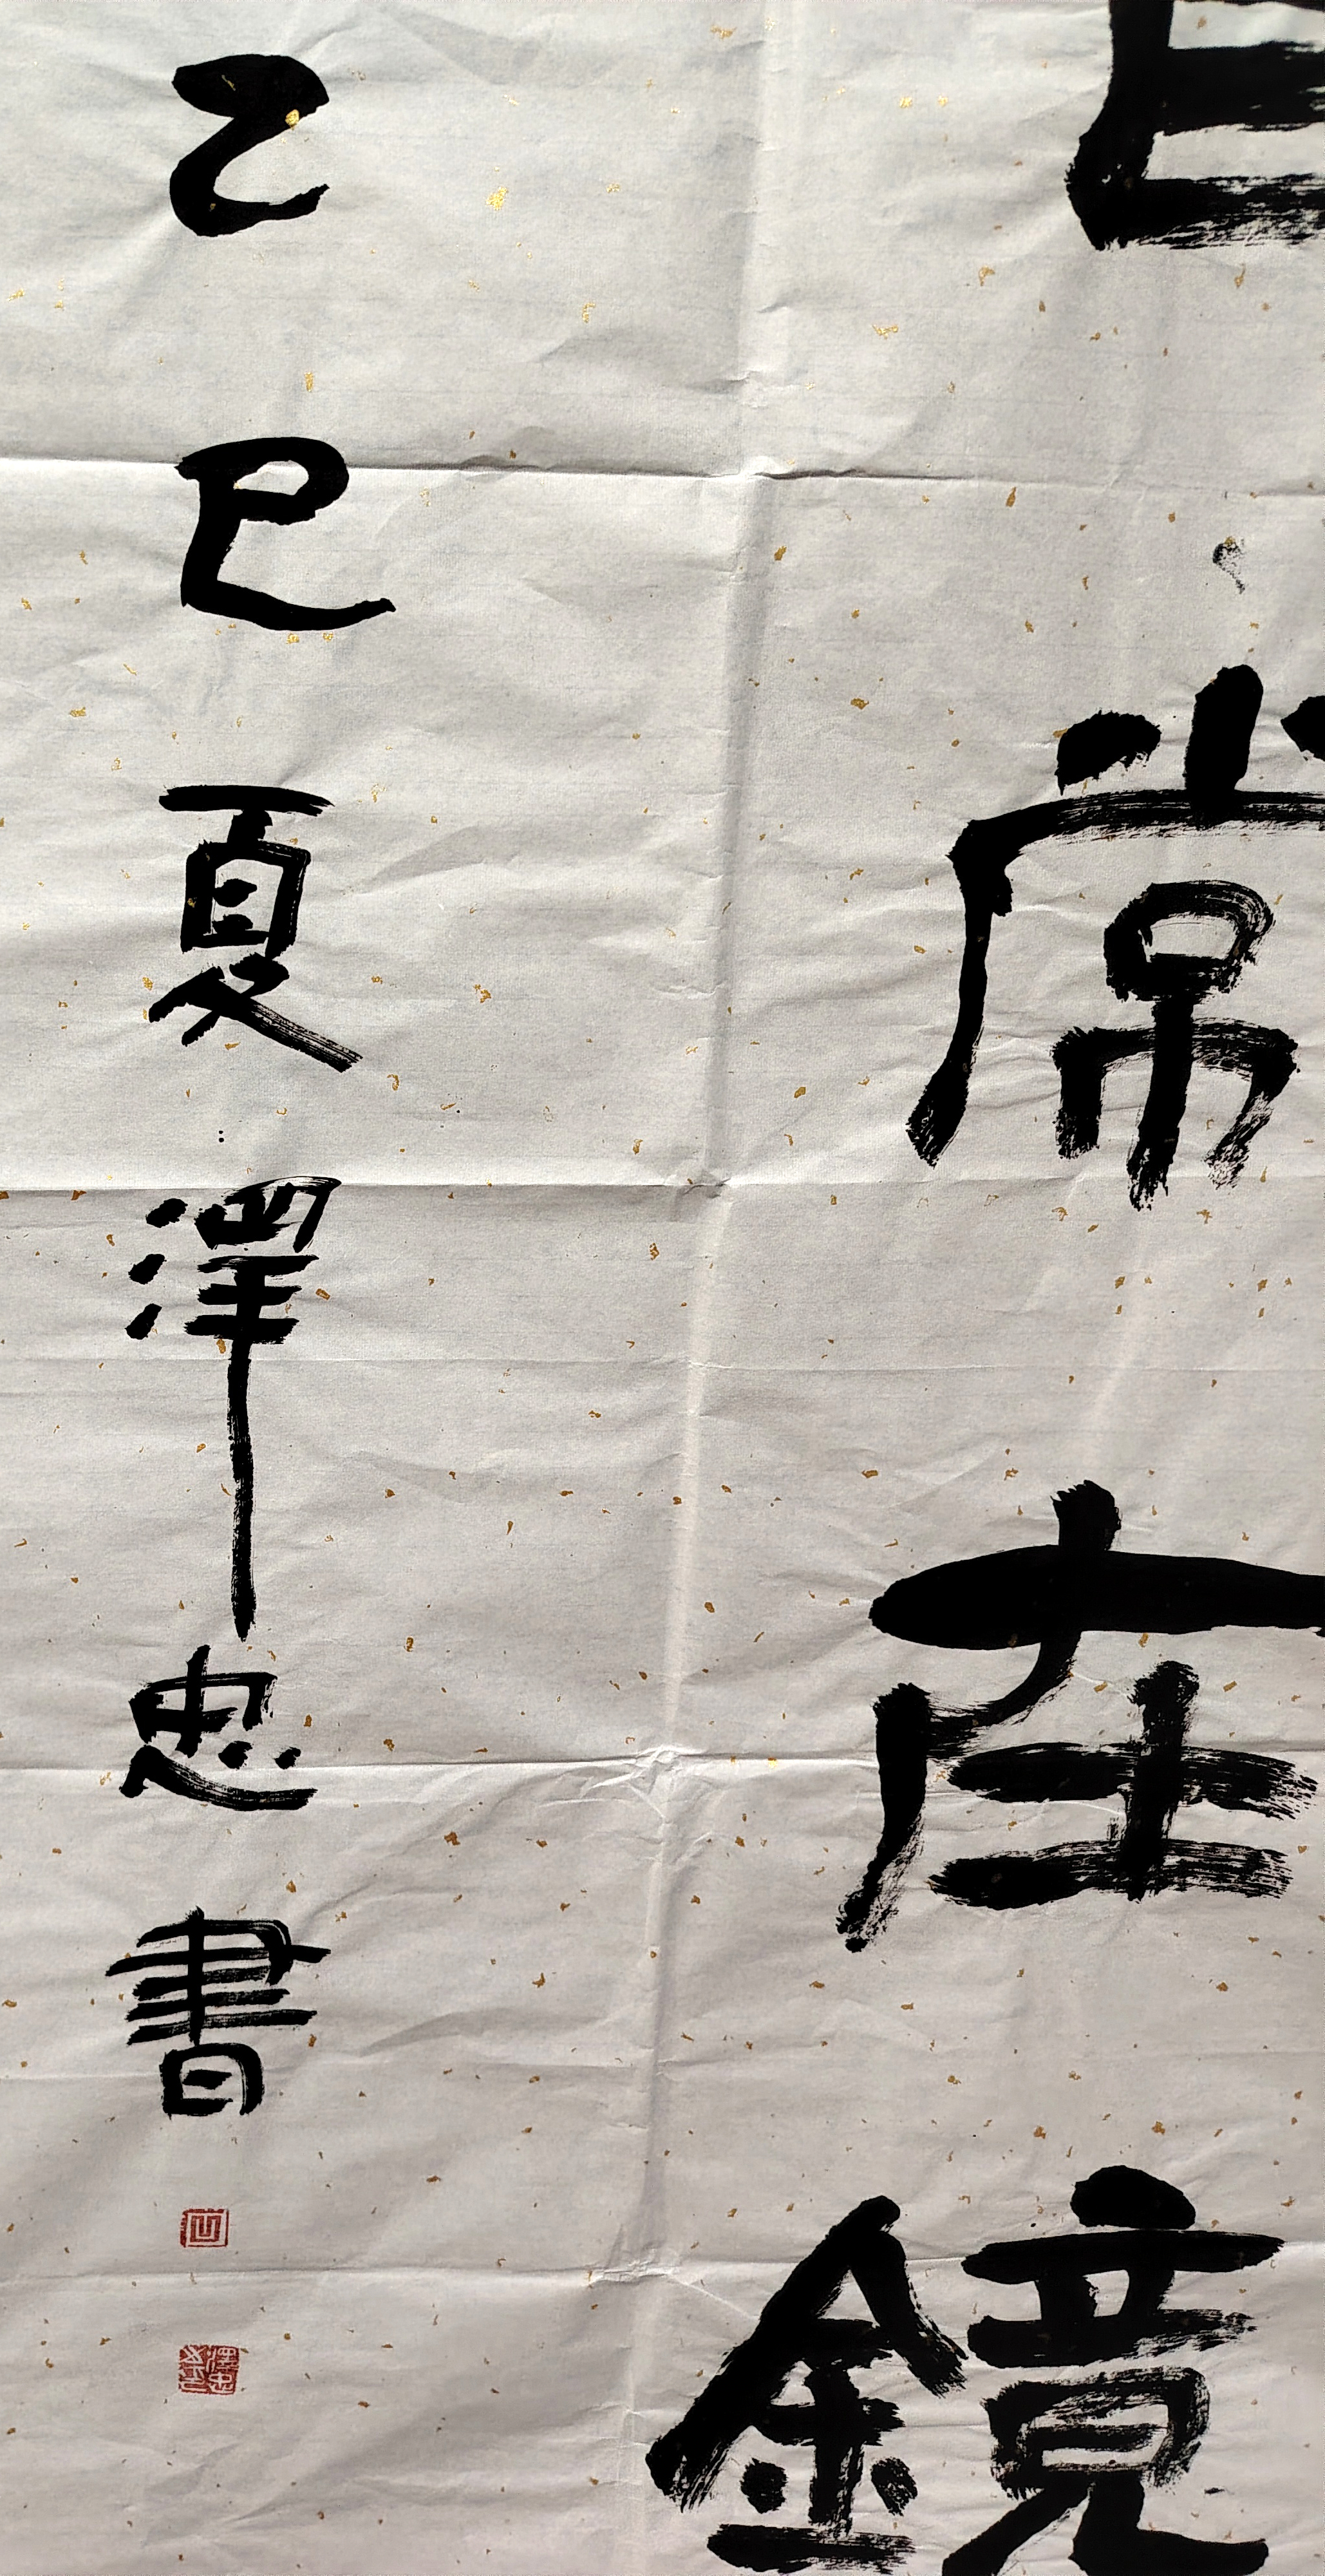 常在鏡
乙巳夏澤忠書